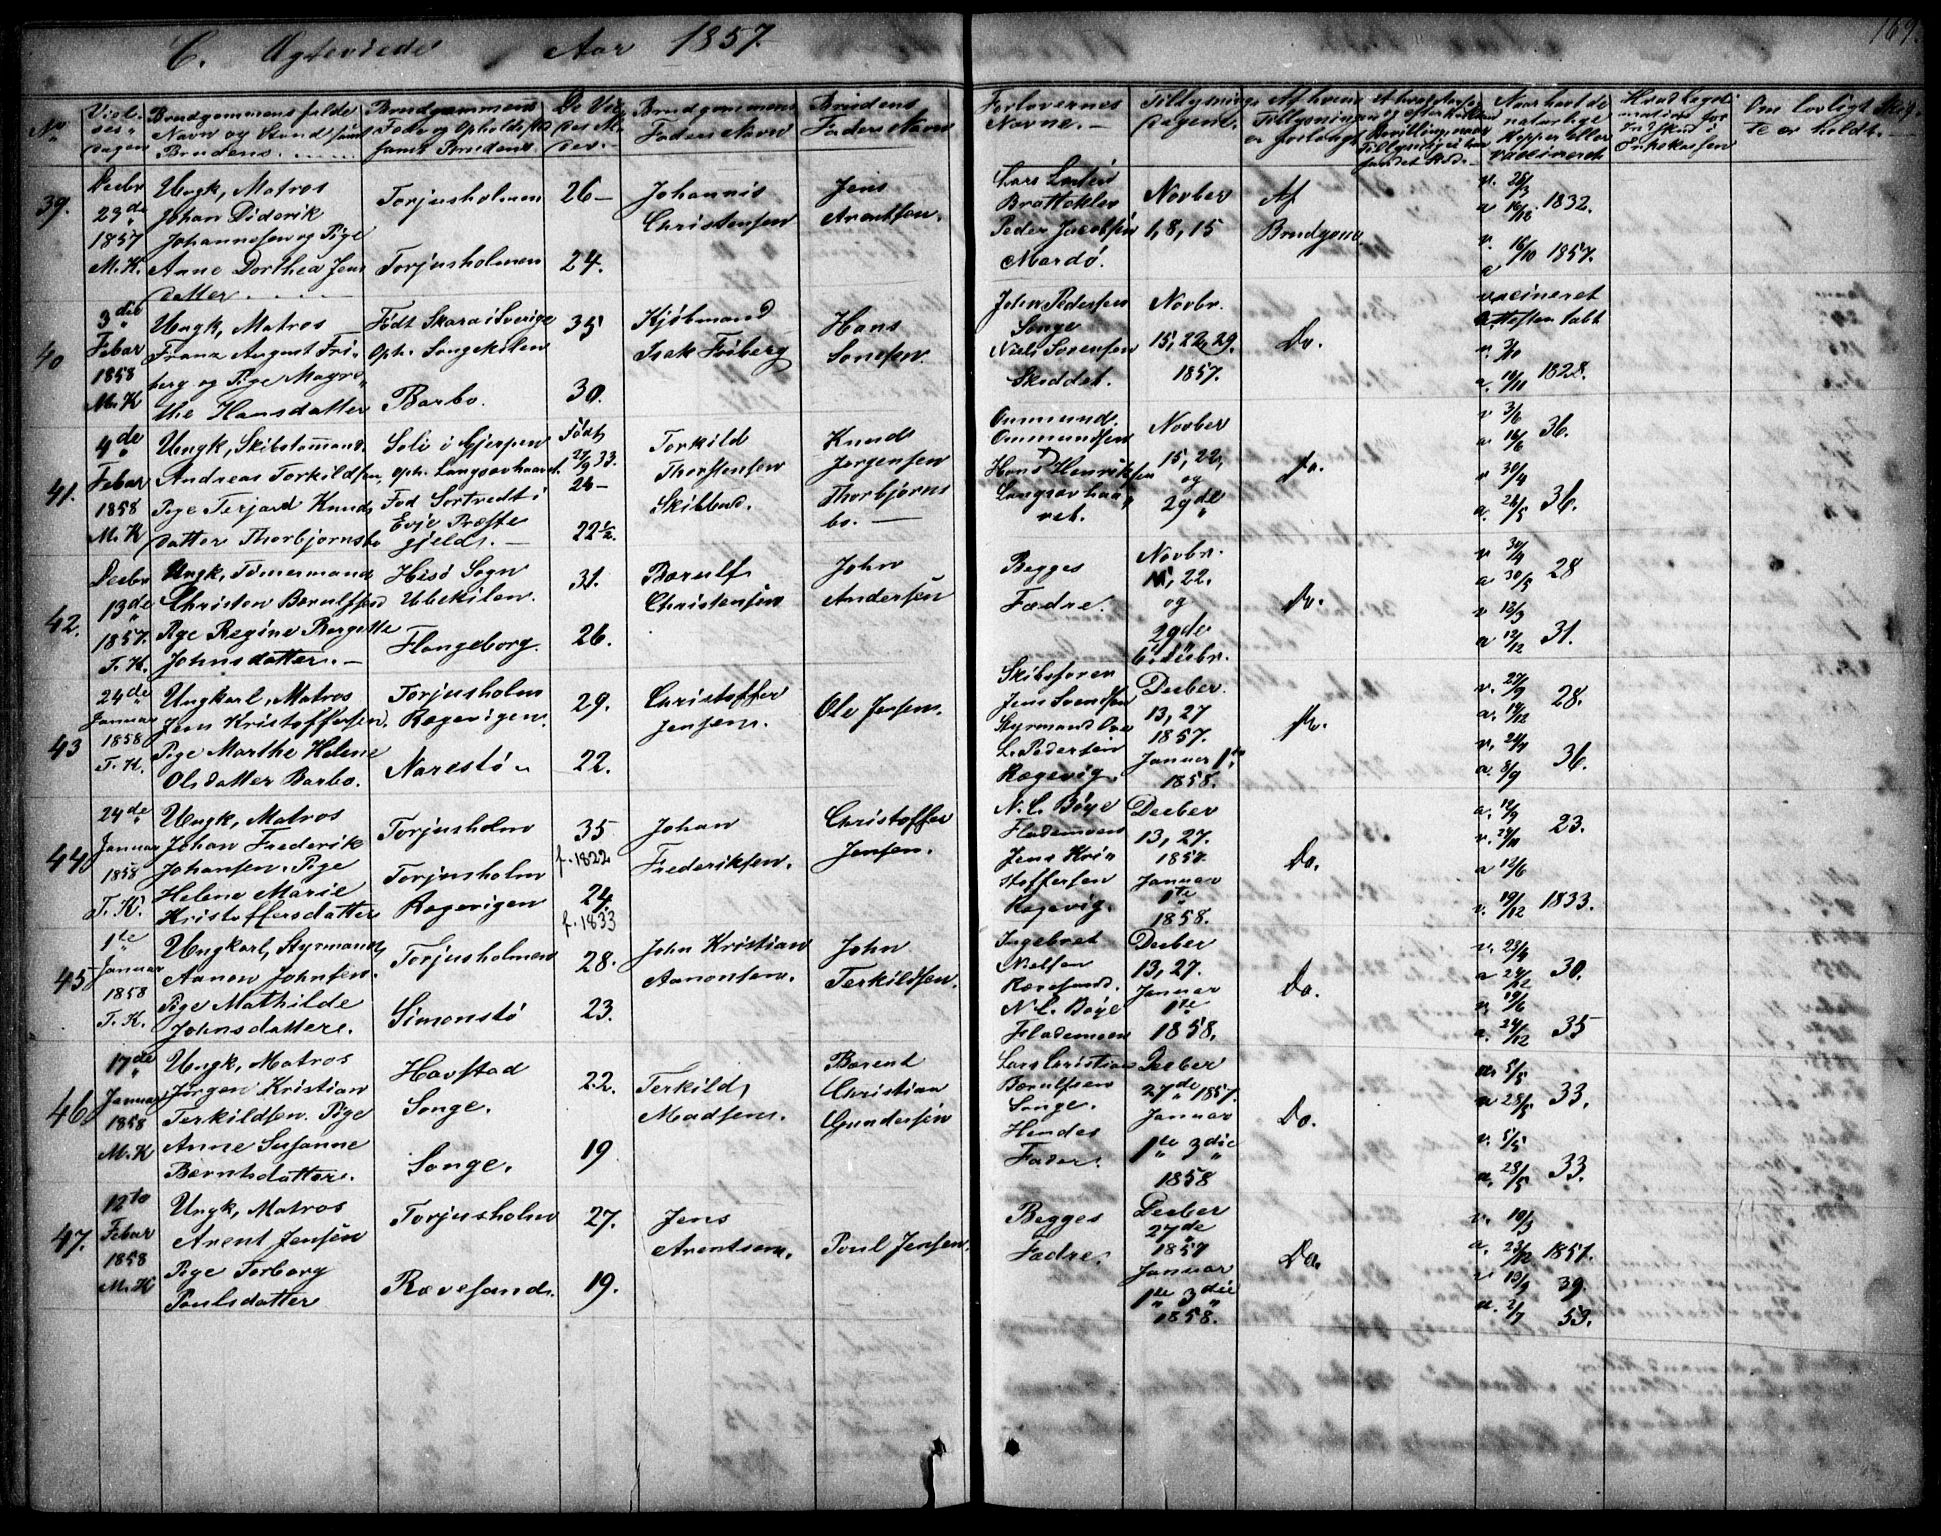 C. Ægteviede Aar 1857.
169.
No
Viel-
ses-
dagen
Brudgommens fulde
Navn og Stand samt
Brudens
Brudgommens
Føde og Opholdsst.
samt Brudens.
De Vie-
des Al-
der.
Brudgommens
Faders Navn
Brudens
Faders Navn
Forlovernes
Navne.
Tillysnings
dagene.
Af hvem
Tillysningen
er forlangt
Naar havt de
naturlige
Kopper eller
vaccineret
Om lovligt Skif-
te er holdt.
39.
Decbr
29de
1857
M.K.
Ungk, Matros
Johan Diderik
Johannesen og Pige
Anne Dorthea Jens
datter
Torjusholmen
Torjusholmen
26
24.
Johannis
Christensen
Jens
Arentsen.
Lars
Brattekler
Peder Jacobsen
Mardö.
Novber
1, 8, 15
Af
Brudgom.
v. 26/3
a 1832.
v. 16/10 1857.
a
40
3die
Febar
1858
M.K
Ungk, Matros
Franz August Fri-
berg og Pige Magre-
the Hansdatter
Født Skara i Sverige
Oph. Songekilen
Barbo.
35
30.
Kjöbmand
Isak Friberg
Hans
Sonesen
John Pedersen
Songe
Niels Sørensen
Skiddet.
Novbr.
15, 22, 29.
1857.
Do.
vaccineret
Attesten tabt
v. 3/10
a. 10/10 1828.
41.
4de
Febar
1858
M.K
Ungk, Skibstømmermd.
Andreas Torkildsen,
Pige Terjard Knuds
datter Thorbjørnsbo
Soli i Gjerpen
oph. Langsævhavnet.
Fød Sortvedt i
Evje Præste
gjeld.
Født
27/9 33.
24
22½.
Torkild
Thorstensen
Skilbred.
Knud
Jørgensen
Thorbjørns
bo.
Ommund
Ommundsen
Hans Henriksen
Langsævhav
net.
Novber
15, 22,
og
29de
Do.
v 3/6
a. 14/6 36.
v 30/4
a. 26/5 36.
42.
Decbr
13de
1857.
T.K.
Ungk, Tømermand
Christen Børulfsen
Pige Regine Bergitte
Johnsdatter.
Hisö Sogn
Ubekilen.
Flangeborg.
31.
26.
Børulf
Christensen
John
Andersen
Begges
Fædre.
Novbr.
15, 22.
og
29de
Do.
v 30/4
a 30/5 28
v 12/3
a 12/12 31.
43
24de
Januar
1858
T.K.
Ungkarl, Matros
Jens Kristoffersen,
Pige Marthe Helene
Olsdatter Barbo.
Torjusholm
Rægevigen.
Narestö
29.
22.
Christoffer
Jensen.
Ole Jensen.
Skibsføren
Jens Svendsen
Styrmand Ove
L. Pedersen
Rægevig.
Decber.
13, 27
1857.
Januar 1te
1858.
Do.
v. 27/9
a. 14/12 28.
v. 24/7
a. 8/9 36.
44
24de
Januar
1858
T.K.
Ungk, Matros
Johan Frederik
Johansen. Pige
Helene Marie
Kristoffersdatter
Torjusholm
Torjusholm
Rægevigen
35
f. 1822
24.
f. 1833
Johan
Frederiksen.
Christoffer
Jensen.
N.C. Böye
Flademoen
Jens Kri-
stoffersen
Rægevig.
Decber
13, 27.
1857.
Januar
1te
1858.
Do.
a. 14/9
v. 24/11 23.
a 12/6
v. 19/12 1833.
45
1te
Januar
1858
T.K.
Ungkarl, Styrmand
Aanon Johnsen.
Pige Mathilde
Johnsdatter.
Torjusholmen
Simonstö
28.
23.
John Kristian
Aanonsen.
John
Terkildsen.
Ingebret
Nielsen
Rævesand.
N.C. Böye
Flademoen
Decber
13, 27.
Januar
1te
1858.
Do.
v. 23/4
a 24/12 30.
v. 19/6
a. 24/12 35
46
17de
Januar
1858
M.K
Ungk, Matros
Jörgen Kristian
Terkildsen. Pige
Anne Susanne
Berntsdatter.
Havstad
Songe.
Songe.
22.
19
Terkild
Madsen.
Berent
Christian
Gundersen
Lars Christian
Børulfsen
Songe.
Hendes
Fader.
Decber
27de 1857.
Januar
1te 3die
1858
Do.
v. 5/5
a 28/5 33.
v. 5/5
a. 28/5 33.
47.
12te
Febar
1858
M.K
Ungk, Matros
Arent Jensen
Pige Torborg
Poulsdatter
Torjusholm
Rævesand.
27.
19.
Jens
Arentsen.
Poul Jensen.
Begges
Fædre.
Decber
27de
1857
Januar
1te 3die
1858.
Do.
v. 10/3
a. 23/12 1857.
v 13/9 39.
a. 2/7 53.